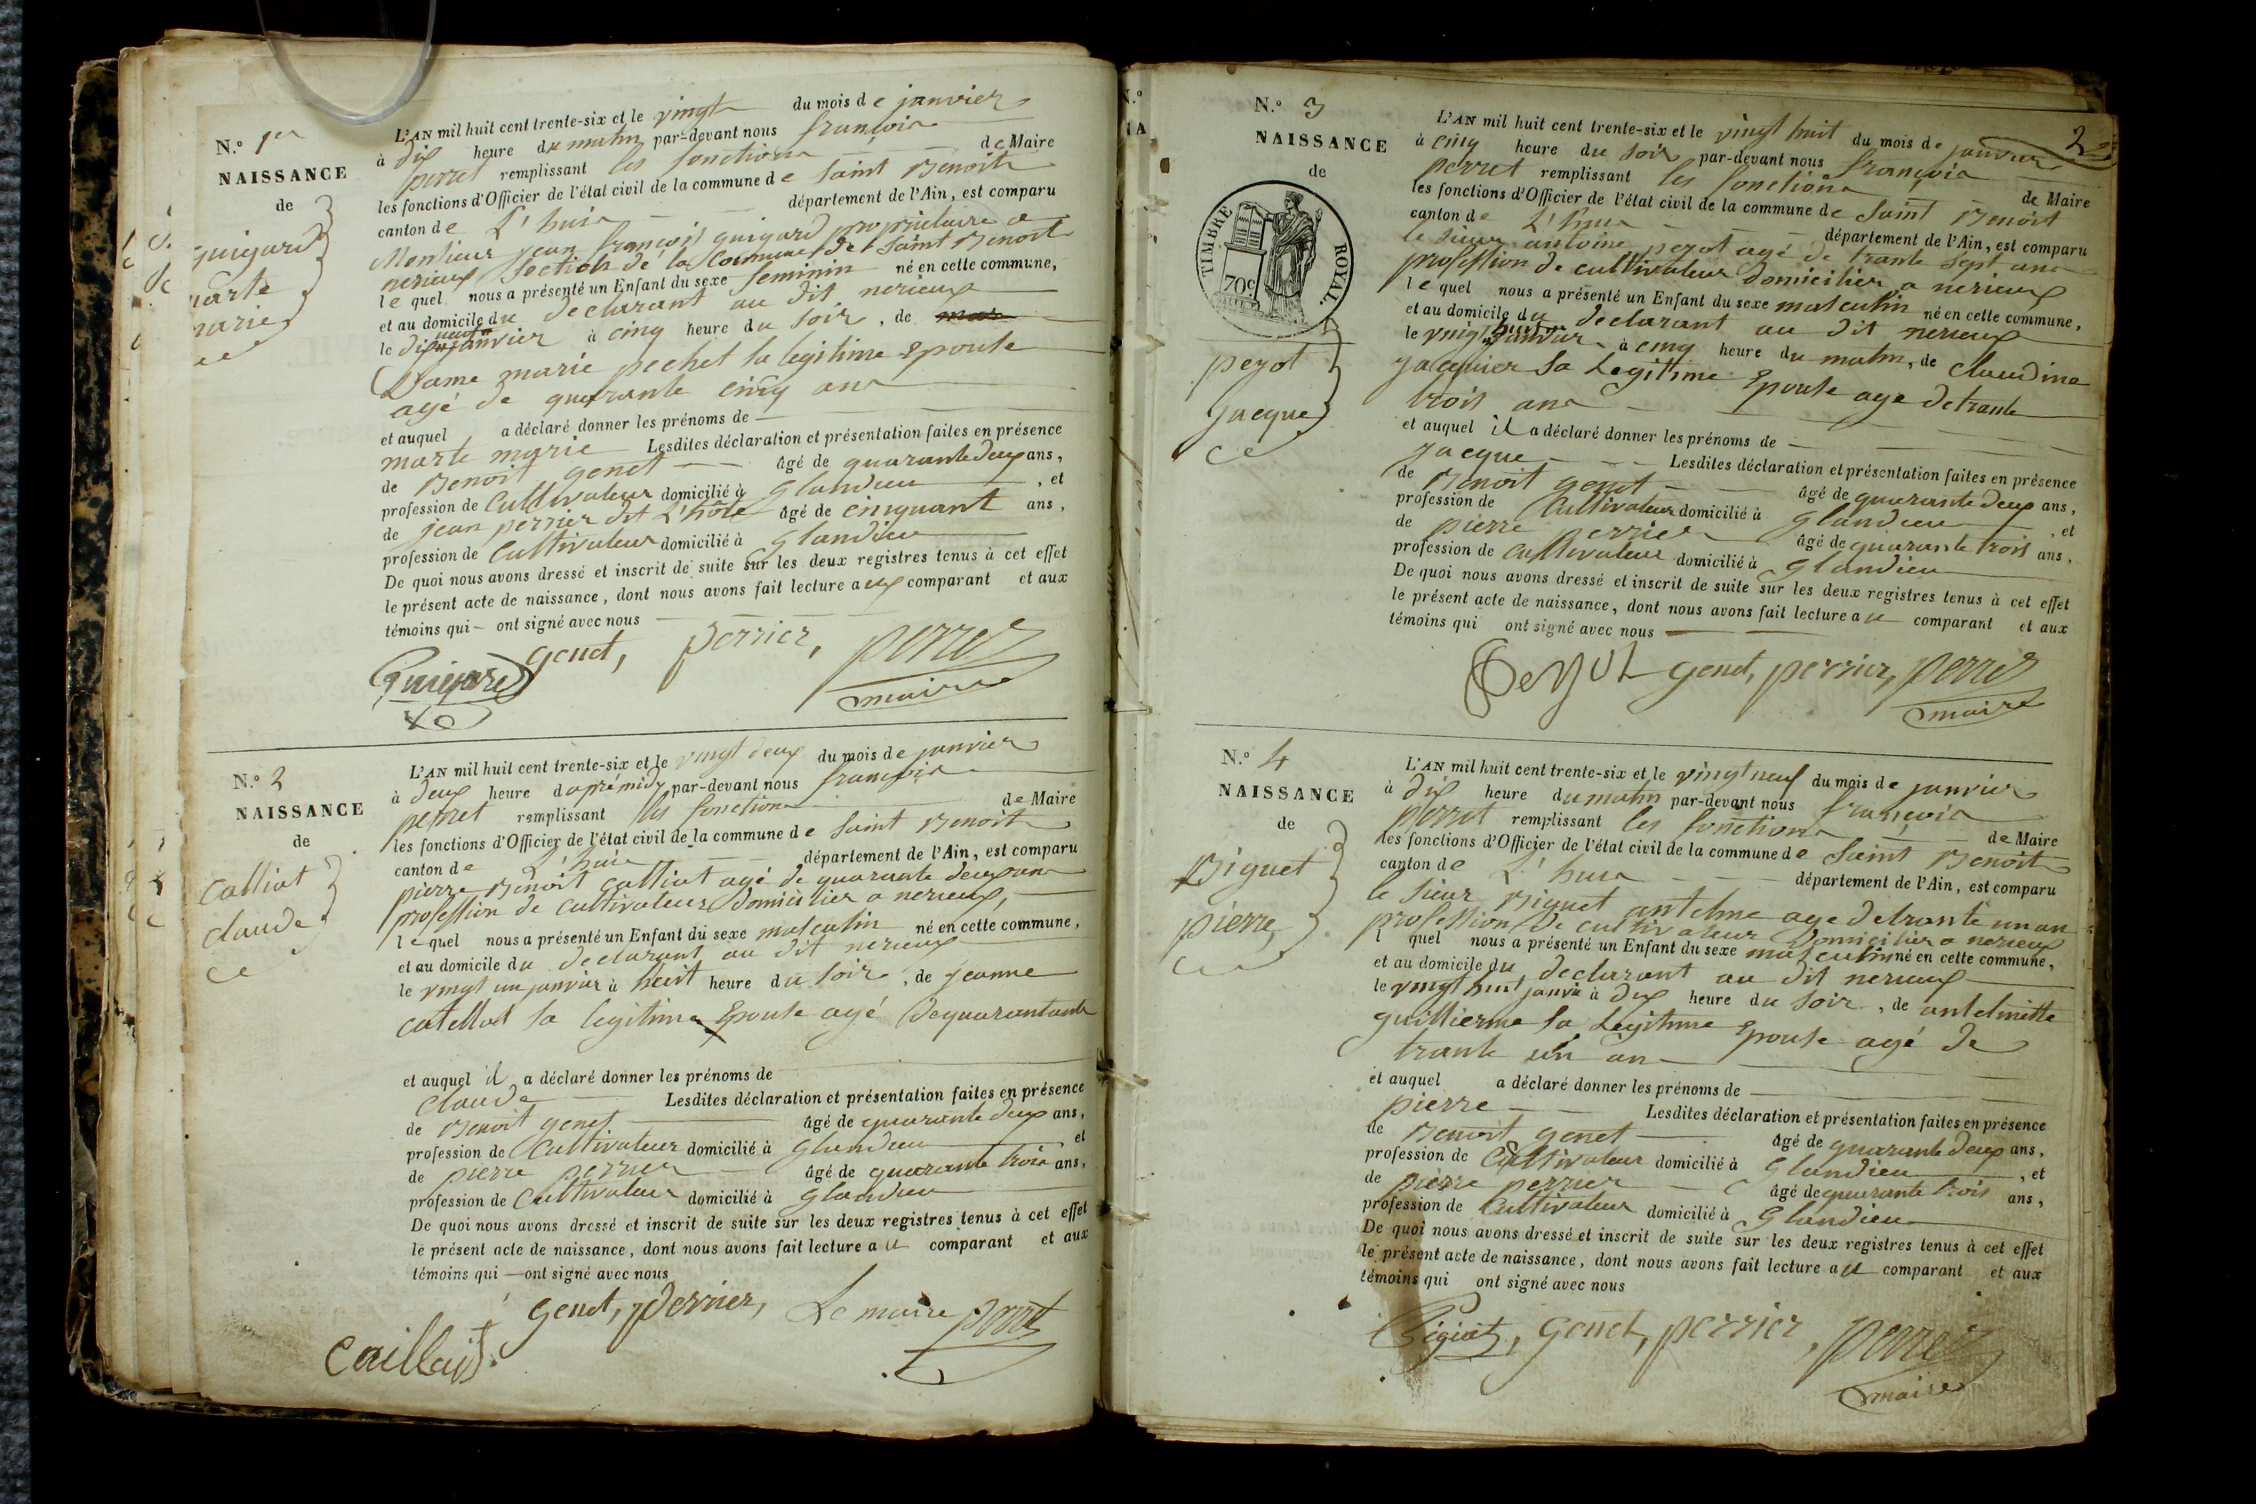 N.º 1er
NAISSANCE
de
guigard
marie
L'AN mil huit cent trente-six et le vingt du mois de janvier
à dix heure du matin par-devant nous françois
perret remplissant les fonctions de Maire
les fonctions d'Officier de l'état civil de la commune de saint Benoit
canton de L'huis département de l'Ain, est comparu
Monsieur jean françois guigard propriétaire a
nerieux section de la Commune de saint Benoit
le quel nous a présenté un Enfant du sexe feminin né en cette commune,
et au domicile du declarant au dit nerieux
le dixneuf janvier à cinq heure du soir, de
Dame marie pechet sa legitime Epouse
agé de quarante cinq ans
et auquel a déclaré donner les prénoms de
marie Lesdites déclaration et présentation faites en présence
de Benoit genet âgé de quarante deux ans,
profession de Cultivateur domicilié à Glandieu, et
de jean perrier dit L'hôte âgé de cinquant ans,
profession de Cultivateur domicilié à glandieu
De quoi nous avons dressé et inscrit de suite sur les deux registres tenus à cet effet
le présent acte de naissance, dont nous avons fait lecture aux comparant et aux
témoins qui ont signé avec nous
Guigard genet, perrier, perret
maire
N.º 2
NAISSANCE
de
Calliat
claude
L'AN mil huit cent trente-six et le vingt deux du mois de janvier
à deux heure daprémidy par-devant nous françois
perret remplissant les fonctions de Maire
les fonctions d'Officier de l'état civil de la commune de saint Benoit
canton de L'huis département de l'Ain, est comparu
pierre Benoit calliat agé de quarante deux ans
profession de cultivateur domicilier a nerieux,
le quel nous a présenté un Enfant du sexe masculin né en cette commune,
et au domicile du declarant au dit nerieux
le vingt un janvier à huit heure du soir, de jeanne
catellat sa legitime Epouse agé de
et auquel il a déclaré donner les prénoms de
claude Lesdites déclaration et présentation faites en présence
de Benoit genet âgé de quarante deux ans,
profession de Cultivateur domicilié à glandieu et
de pierre perrier âgé de quarante trois ans,
profession de Cultivateur domicilié à glandieu
De quoi nous avons dressé et inscrit de suite sur les deux registres tenus à cet effet
le présent acte de naissance, dont nous avons fait lecture au comparant et aux
témoins qui ont signé avec nous
genet, perrier, Le maire perret
Caillat
2
N.º 3
NAISSANCE
de
TIMBRE ROYAL.
70c
peyot
jacque
L'AN mil huit cent trente-six et le vingt huit du mois de janvier
à cinq heure du soir par-devant nous françois
perret remplissant les fonctions de Maire
les fonctions d'Officier de l'état civil de la commune de saint Benoit
canton de L'huis département de l'Ain, est comparu
le sieur antoine peyot agé de trante sept ans
profession de cultivateur domicilier a nerieux
le quel nous a présenté un Enfant du sexe masculin né en cette commune,
et au domicile du declarant au dit nerieux
le vingt huit janvier à cinq heure du matin, de claudine
jaquier sa Legitime Epouse age de trante
trois ans
et auquel il a déclaré donner les prénoms de
jacque Lesdites déclaration et présentation faites en présence
de Benoit genet âgé de quarante deux ans,
profession de Cultivateur domicilié à glandieu, et
de pierre perrier âgé de quarante trois ans,
profession de cultivateur domicilié à glandieu
De quoi nous avons dressé et inscrit de suite sur les deux registres tenus à cet effet
le présent acte de naissance, dont nous avons fait lecture au comparant et aux
témoins qui ont signé avec nous
Peyot genet, perrier, perret
maire
N.º 4
NAISSANCE
de
Biguet
pierre
L'AN mil huit cent trente-six et le vingt neuf du mois de janvier
à dix heure du matin par-devant nous françois
perret remplissant les fonctions de Maire
les fonctions d'Officier de l'état civil de la commune de saint Benoit
canton de L'huis département de l'Ain, est comparu
le sieur Biguet antelme age de trante un an
profession de cultivateur domicilier a nerieux
l quel nous a présenté un Enfant du sexe masculin né en cette commune,
et au domicile du declarant au dit nerieux
le vingt huit janvie à dix heure du soir, de antelmette
guillierme sa Legitime Epouse agé de
trante un an
et auquel a déclaré donner les prénoms de
pierre Lesdites déclaration et présentation faites en présence
de Benoit genet âgé de quarante deux ans,
profession de Cultivateur domicilié à glandieu, et
de pierre perrier âgé de quarante trois ans,
profession de Cultivateur domicilié à glandieu
De quoi nous avons dressé et inscrit de suite sur les deux registres tenus à cet effet
le présent acte de naissance, dont nous avons fait lecture au comparant et aux
témoins qui ont signé avec nous
Biguet, genet, perrier, perret
maire